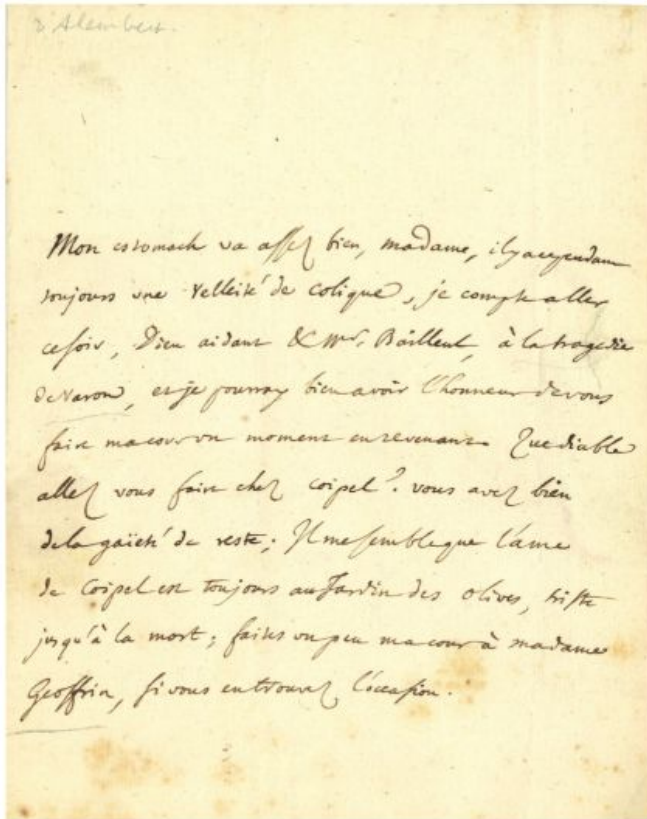 D'Alembert.
Mon estomach va assez bien, madame, il y a cependant
toujours une velleité de colique, je compte aller
ce soir, Dieu aidant & Mr. Bailleul, à la tragedie
de Varon, et je pourray bien avoir l'honneur de vous
faire ma cour un moment en revenant. Que diable
allez vous faire chez coipel? vous avez bien
de la gaïeté de reste; Il me semble que l'ame
de Coipel est toujours au Jardin des olives, triste
jusqu'à la mort; faites un peu ma cour à madame
Geoffrin, si vous en trouvez l'occasion.